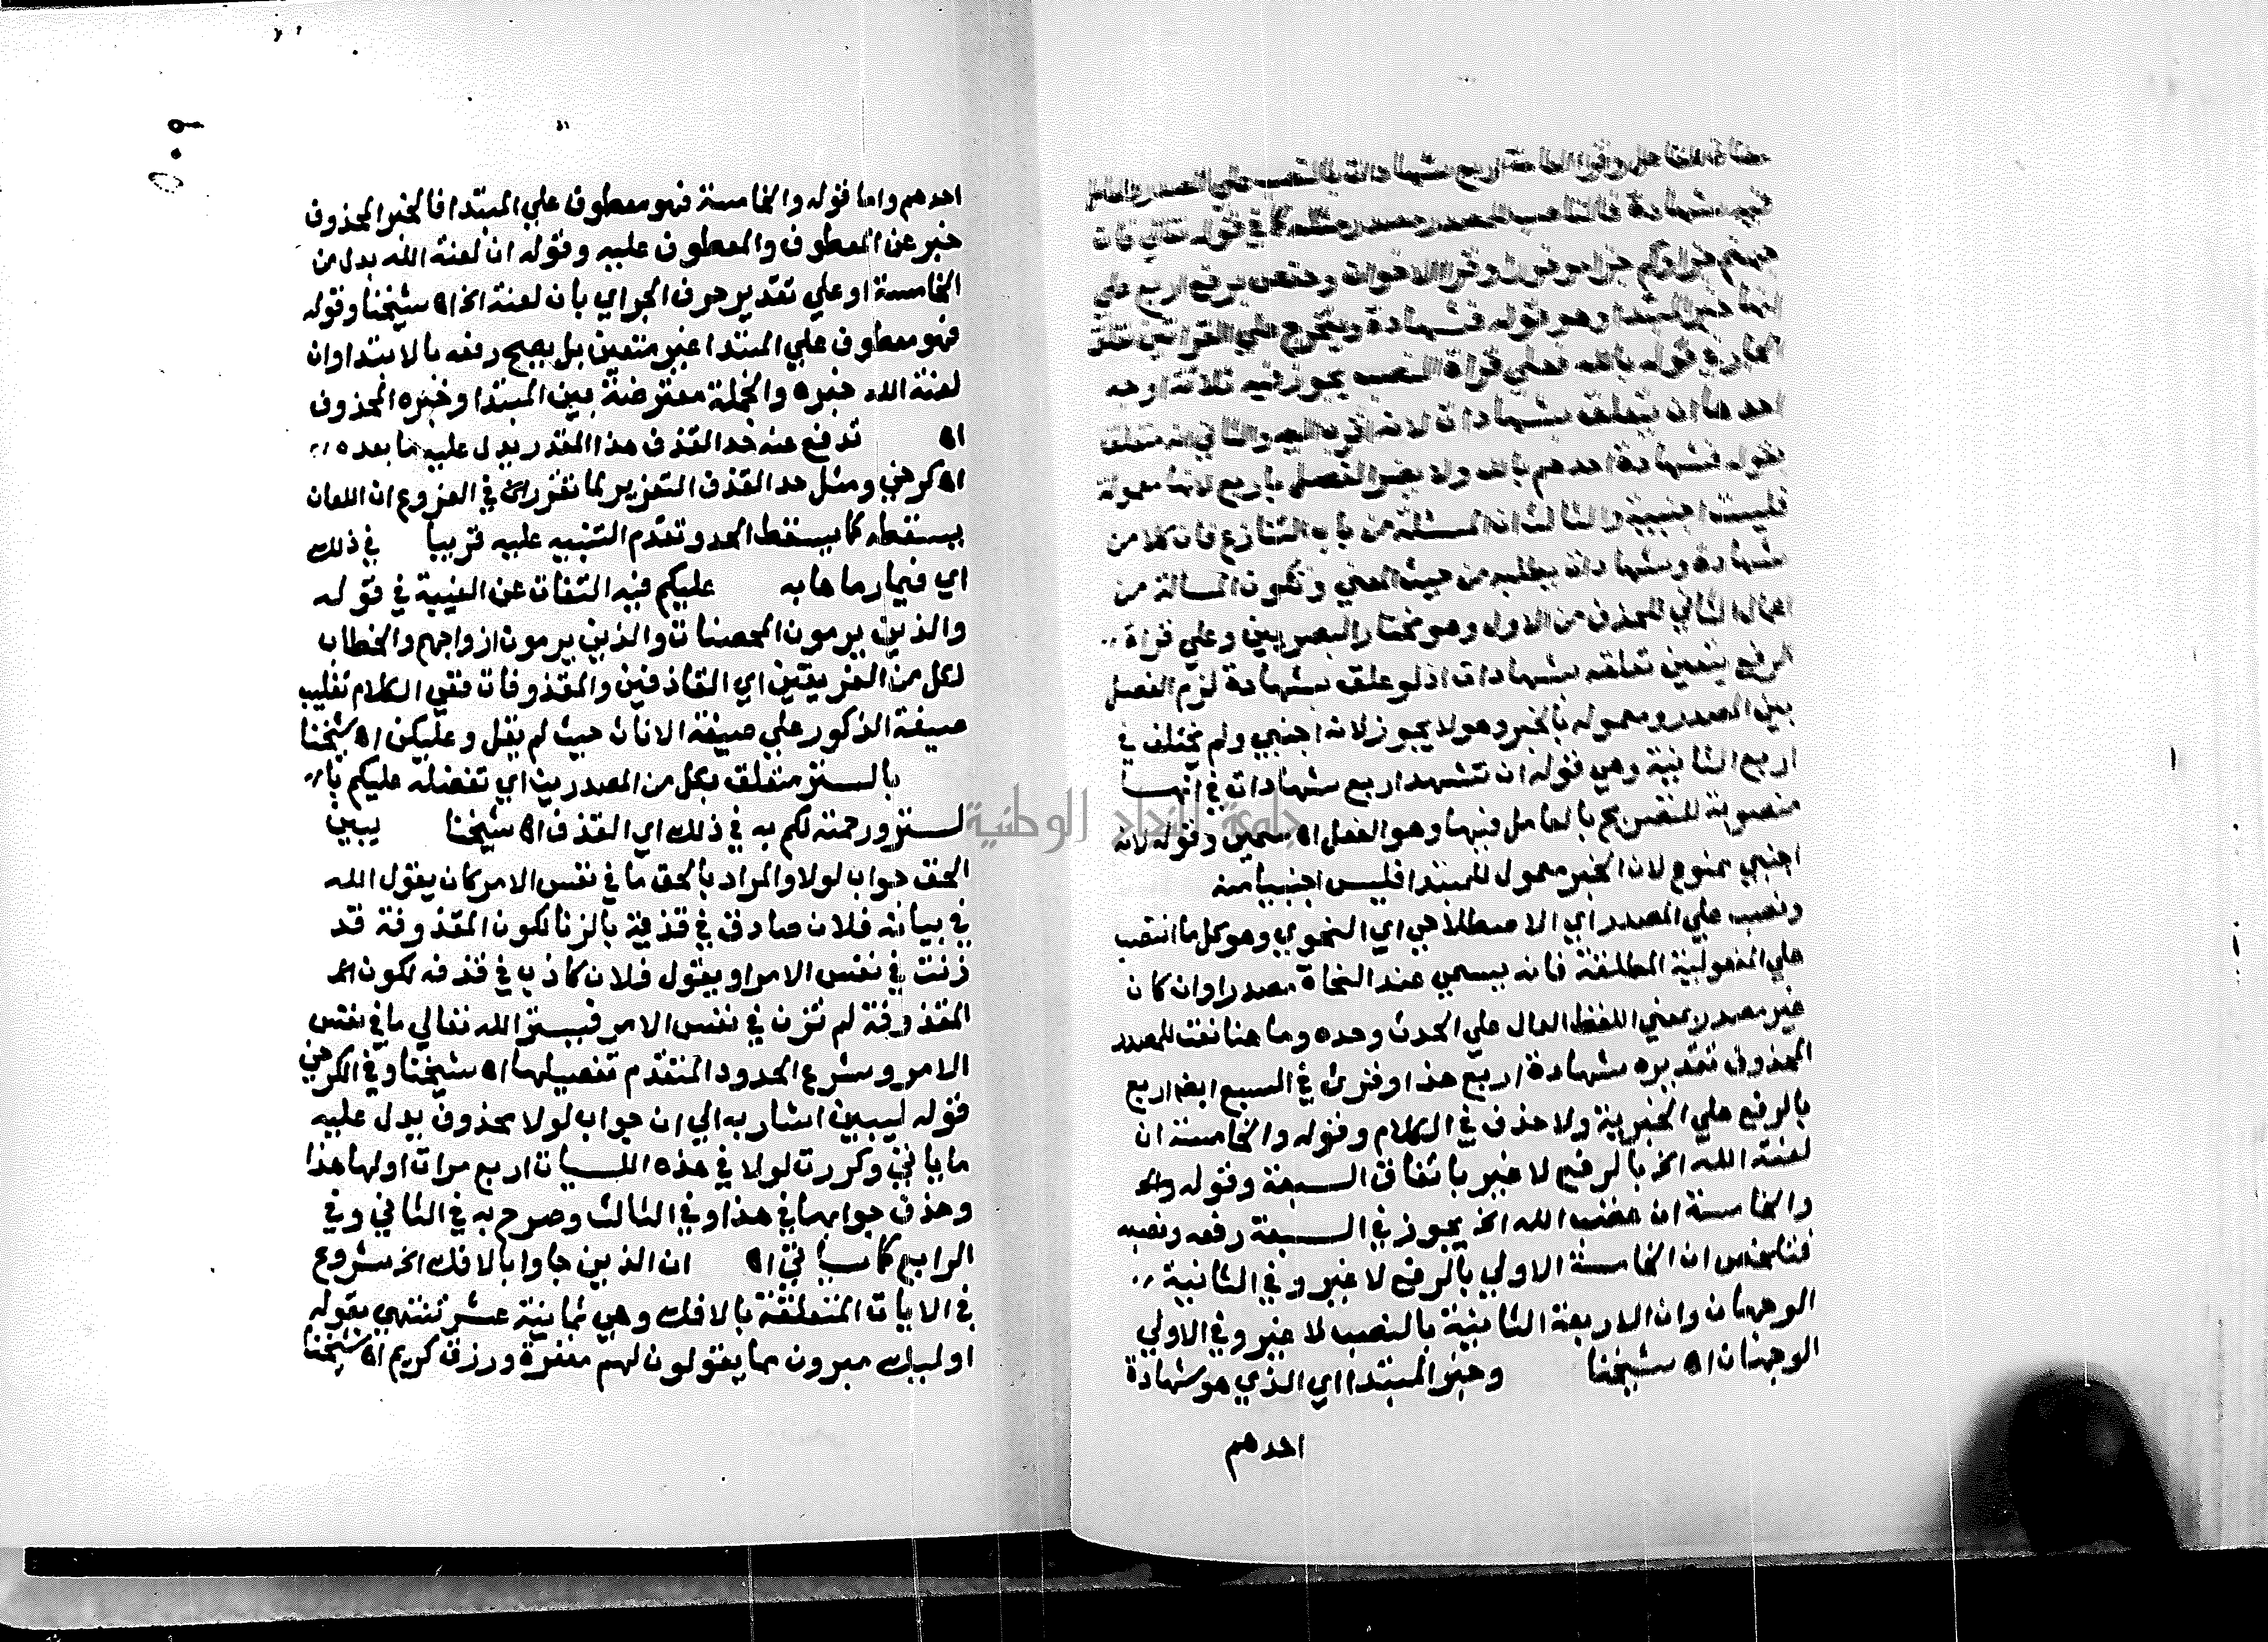 مضاف للفاعل وقرا العامة اربع شهادات بالنصب علي المصدر والعامل
فيه شهادة فالناصب للمصدر مصدر مثله كما في قوله تعالي فان
جهنم جزاوكم جزا موفورا وقرا الاخوان وحفص برفع اربع علي
انها خبر المبتدا وهو قوله فشهادة ويتخرج علي القراتين تعلق
الجار في قوله بالله فعلي قراة النصب يجوز فيه ثلاثة اوجه
احدها ان يتعلق بشهادات لانه اقرب اليه والثاني انه متعلق
بقوله فشهادة احدهم بالله ولا يضر الفصل باربع لانها معمولة
فليست اجنبية والثالث ان المسئلة من باب التنازع فان كلا من
شهادة وشهادات يطلبه من حيث المعني وتكون المسالة من
اعمال الثاني للحذف من الاول وهو مختار البصريين وعلي قراة
الرفع يتعين تعلقه بشهادات اذ لو علق بشهادة لزم الفصل
بين المصدر ومعموله بالخبر وهو لا يجوز لانه اجنبي ولم يختلف في
اربع الثانية وهي قوله ان تشهد اربع شهادات في انها
منصوبة للتصريح بالعامل فيها وهو الفعل اه سمين وقوله لانه
اجنبي ممنوع لان الخبر معمول للمبتدا فليس اجنبيا منه
ونصب علي المصدر اي الاصطلاحي اي النحوي وهو كل ما انتصب
علي المفعولية المطلقة فانه يسمي عند النحاة مصدرا وان كان
غير مصدر بمعني اللفظ الدال علي الحدث وحده وما هنا نعت للمصدر
المحذوف تقديره شهادة اربع هذا وقرئ في السبع ايضا اربع
بالرفع علي الخبرية ولا حذف في الكلام وقوله والخامسة ان
لعنة الله الخ بالرفع لا غير باتفاق السبعة وقوله
والخامسة ان غضب الله الخ يجوز في السبعة رفعه ونصبه
فتلخص ان الخامسة الاولي بالرفع لا غير وفي الثانية
الوجهان وان الاربعة الثانية بالنصب لا غير وفي الاولي
الوجهان اه شيخنا وخبر المبتدا اي الذي هو شهادة
احدهم
احدهم واما قوله والخامسة فهو معطوف علي المبتدا فالخبر المحذوف
خبر عن المعطوف والمعطوف عليه وقوله ان لعنة الله بدل من
الخامسة او علي تقدير حرف الجر اي بان لعنة الخ اه شيخنا وقوله
فهو معطوف علي المبتدا غير متعين بل يصح رفعه بالابتدا وان
لعنة الله خبره والجملة معترضة بين المبتدا وخبره المحذوف
اه تدفع عنه حد القذف هذا المقدر يدل عليه ما بعده
اه كرخي ومثل حد القذف التعزير لما تقرر في الفروع ان اللعان
يسقطه كما يسقط الحد وتقدم التنبيه عليه قريبا في ذلك
اي فيما رماها به عليكم فيه التفات عن الغيبة في قوله
والذين يرمون المحصنات والذين يرمون ازواجهم والخطاب
لكل من الفريقين اي القاذفين والمقذوفات ففي الكلام تغليب
صيغة الذكور علي صيغة الاناث حيث لم يقل وعليكن اه شيخنا
بالستر متعلق بكل من المصدرين اي تفضله عليكم با
لستر ورحمته لكم به في ذلك اي القذف اه شيخنا ليبين
الحق جواب لولا والمراد بالحق ما في نفس الامر كان يقول الله
في بيانه فلان صادق في قذفه بالزنا لكون المقذوفة قد
زنت في نفس الامر او يقول فلان كاذب في قذفه لكون
المقذوفة لم تزن في نفس الامر فيستر الله تعالي ما في نفس
الامر وشرع الحدود المتقدم تفصيلها اه شيخنا وفي الكرخي
قوله ليبين اشار به الي ان جواب لولا محذوف يدل عليه
ما ياتي وكررت لولا في هذه السيات اربع مرات اولها هذا
وحذف جوابها في هذا وفي الثالث وصرح به في الثاني وفي
الرابع كما سياتي اه ان الذين جاوا بالافك الخ شروع
في الايات المتعلقة بالافك وهي ثمانية عشر تنتهي بقوله
اوليك مبرون مما يقولون لهم مغفرة ورزق كريم اه شيخنا
جامعة النجاح الوطنية